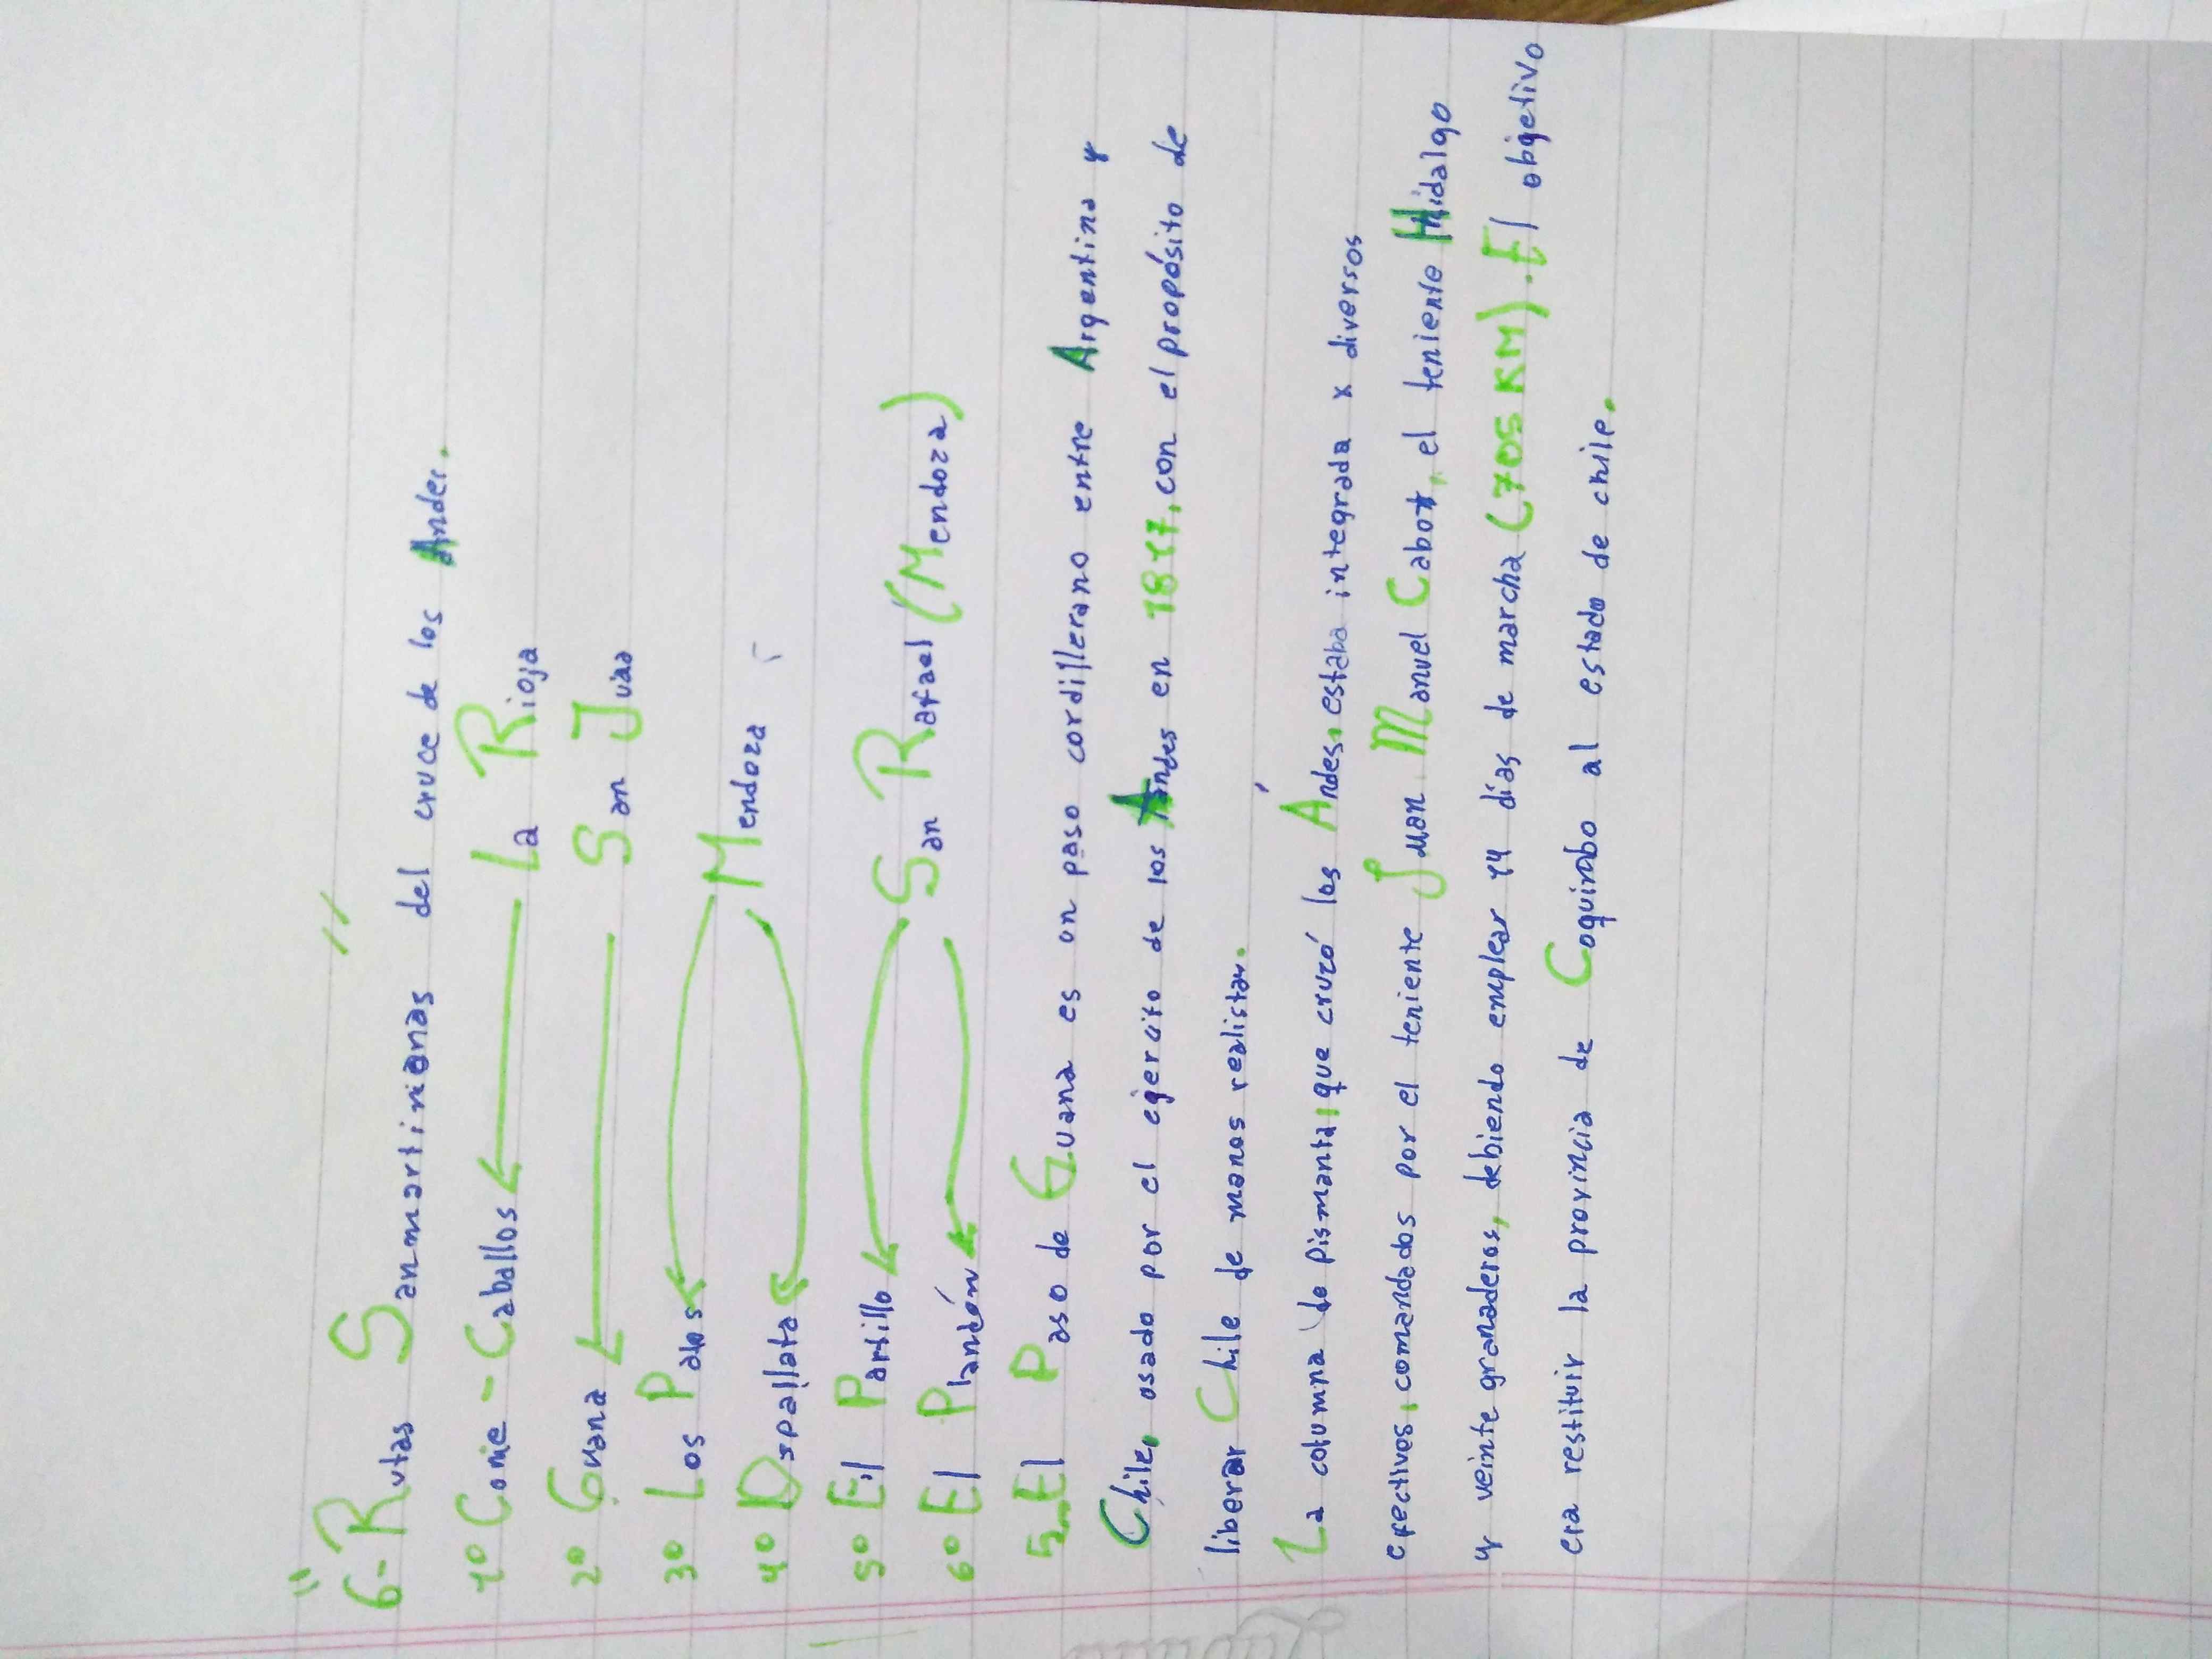 "6-Rutas Sanmartinianas"
del cruce de los Andes.
1º Come-Caballos ← La Rioja
2º Guana ← San Juan
3º Los Patos ← Mendoza
4º Uspallata ←
5º El Portillo ← San Rafael (Mendoza)
6º El Planchón ←
5_El Paso de Guana es un paso cordillerano entre Argentina y
Chile, usado por el ejercito de los Andes en 1817, con el propósito de
liberar Chile de manos realistas.
La columna de Pismanta, que cruzó los Andes, estaba integrada x diversos
efectivos, comandados por el teniente Juan Manuel Cabot, el teniente Hidalgo
y veinte granaderos, debiendo emplear 14 días de marcha (705 KM). El objetivo
era restituir la provincia de Coquimbo al estado de chile.